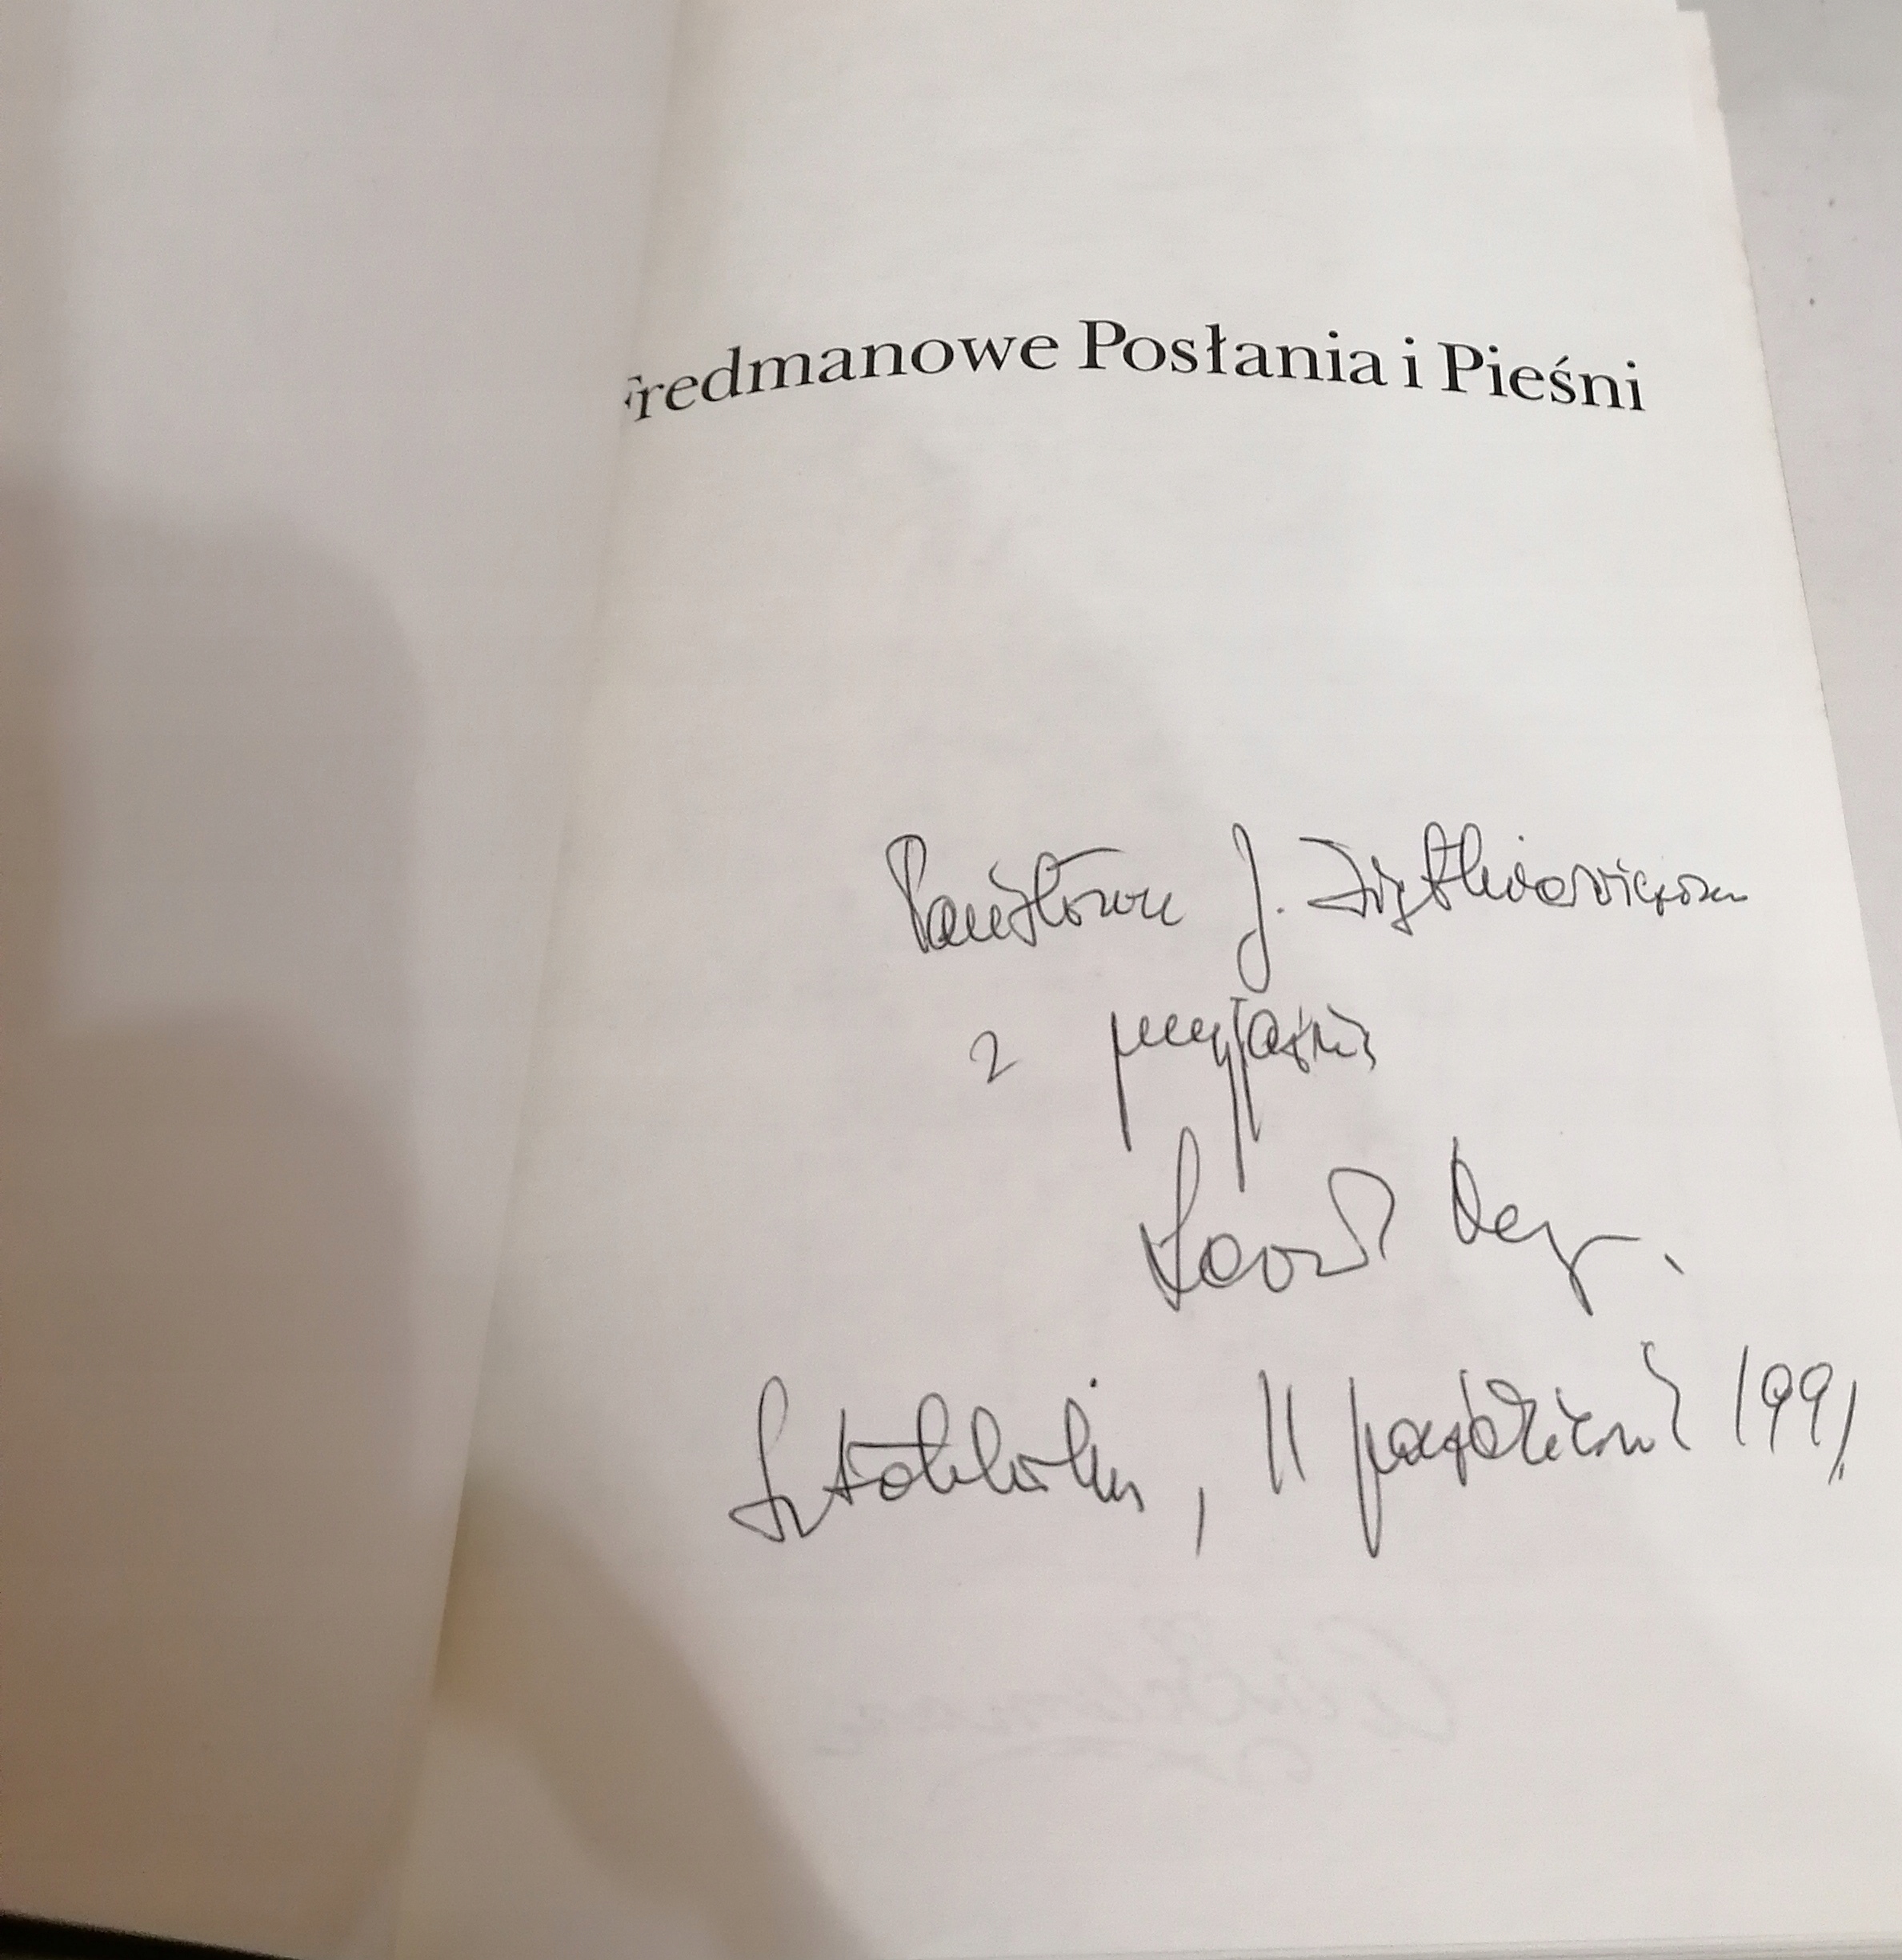 Fredmanowe Posłania i Pieśni
Państwu J.
z przyjaźnią
Leonard Neuger
Sztokholm, 11 październik 1991